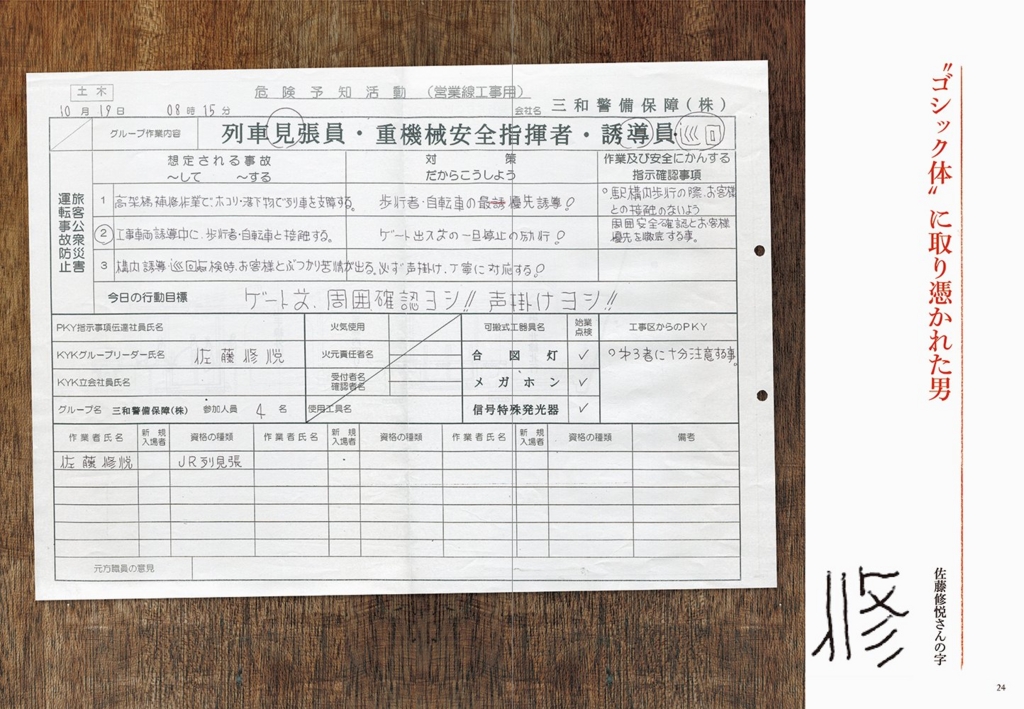 “ゴシック体”に取り憑かれた男
佐藤修悦さんの字
修
24
土木
危険予知活動 (営業線工事用)
10月19日 08時15分
会社名 三和警備保障(株)
グループ作業内容
列車見張員・重機械安全指揮者・誘導員
想定される事故
〜して 〜する
対策
だからこうしよう
作業及び安全にかんする
指示確認事項
旅客公衆災害
運転事故防止
1 高架橋補修作業で、ホコリ・落下物で列車を支障する。
歩行者・自転車の最優先誘導!
○駅構内歩行の際、お客様
との接触のないよう
2 工事車両誘導中に、歩行者・自転車と接触する。
ゲート出入口の一旦停止の励行!
周囲安全確認とお客様
優先を徹底する事。
3 構内誘導・巡回点検時、お客様とぶつかり苦情が出る。
必ず声掛け、丁寧に対応する!
今日の行動目標
ゲート口、周囲確認ヨシ!! 声掛けヨシ!!
PKY指示事項伝達社員氏名
火気使用
可搬式工器具名
始業
点検
工事区からのPKY
KYKグループリーダー氏名 佐藤修悦
火元責任者名
合図灯 ✓
○第3者に十分注意する事。
KYK立会社員氏名
受付者名
確認者名
メガホン ✓
グループ名 三和警備保障(株) 参加人員 4名
使用工具名
信号特殊発光器 ✓
作業者氏名 新規入場者 資格の種類 作業者氏名 新規入場者 資格の種類 作業者氏名 新規入場者 資格の種類 備考
佐藤修悦 JR列見張
元方職員の意見